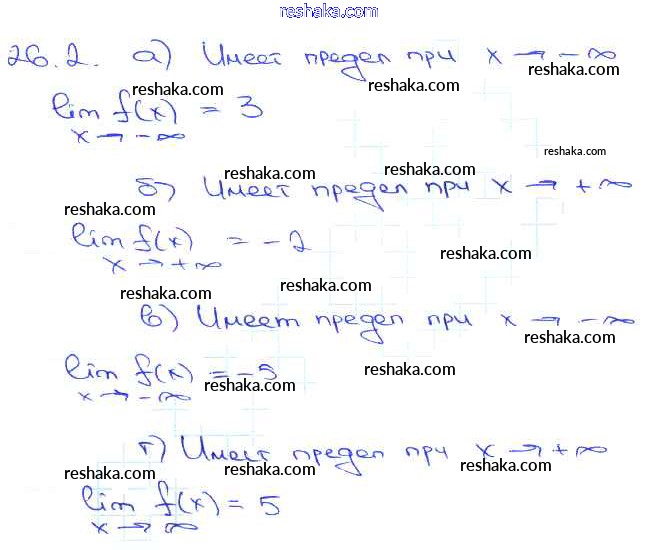 reshaka.com
26.2. а) Имеет предел при x → -∞
reshaka.com
reshaka.com reshaka.com
lim f(x) = 3
x → -∞
reshaka.com
reshaka.com reshaka.com
б) Имеет предел при x → +∞
reshaka.com
lim f(x) = -2
x → +∞
reshaka.com
reshaka.com
reshaka.com
в) Имеет предел при x → -∞
reshaka.com
lim f(x) = -5
x → -∞
reshaka.com
reshaka.com
г) Имеет предел при x → +∞
reshaka.com reshaka.com reshaka.com
lim f(x) = 5
x → ∞
reshaka.com